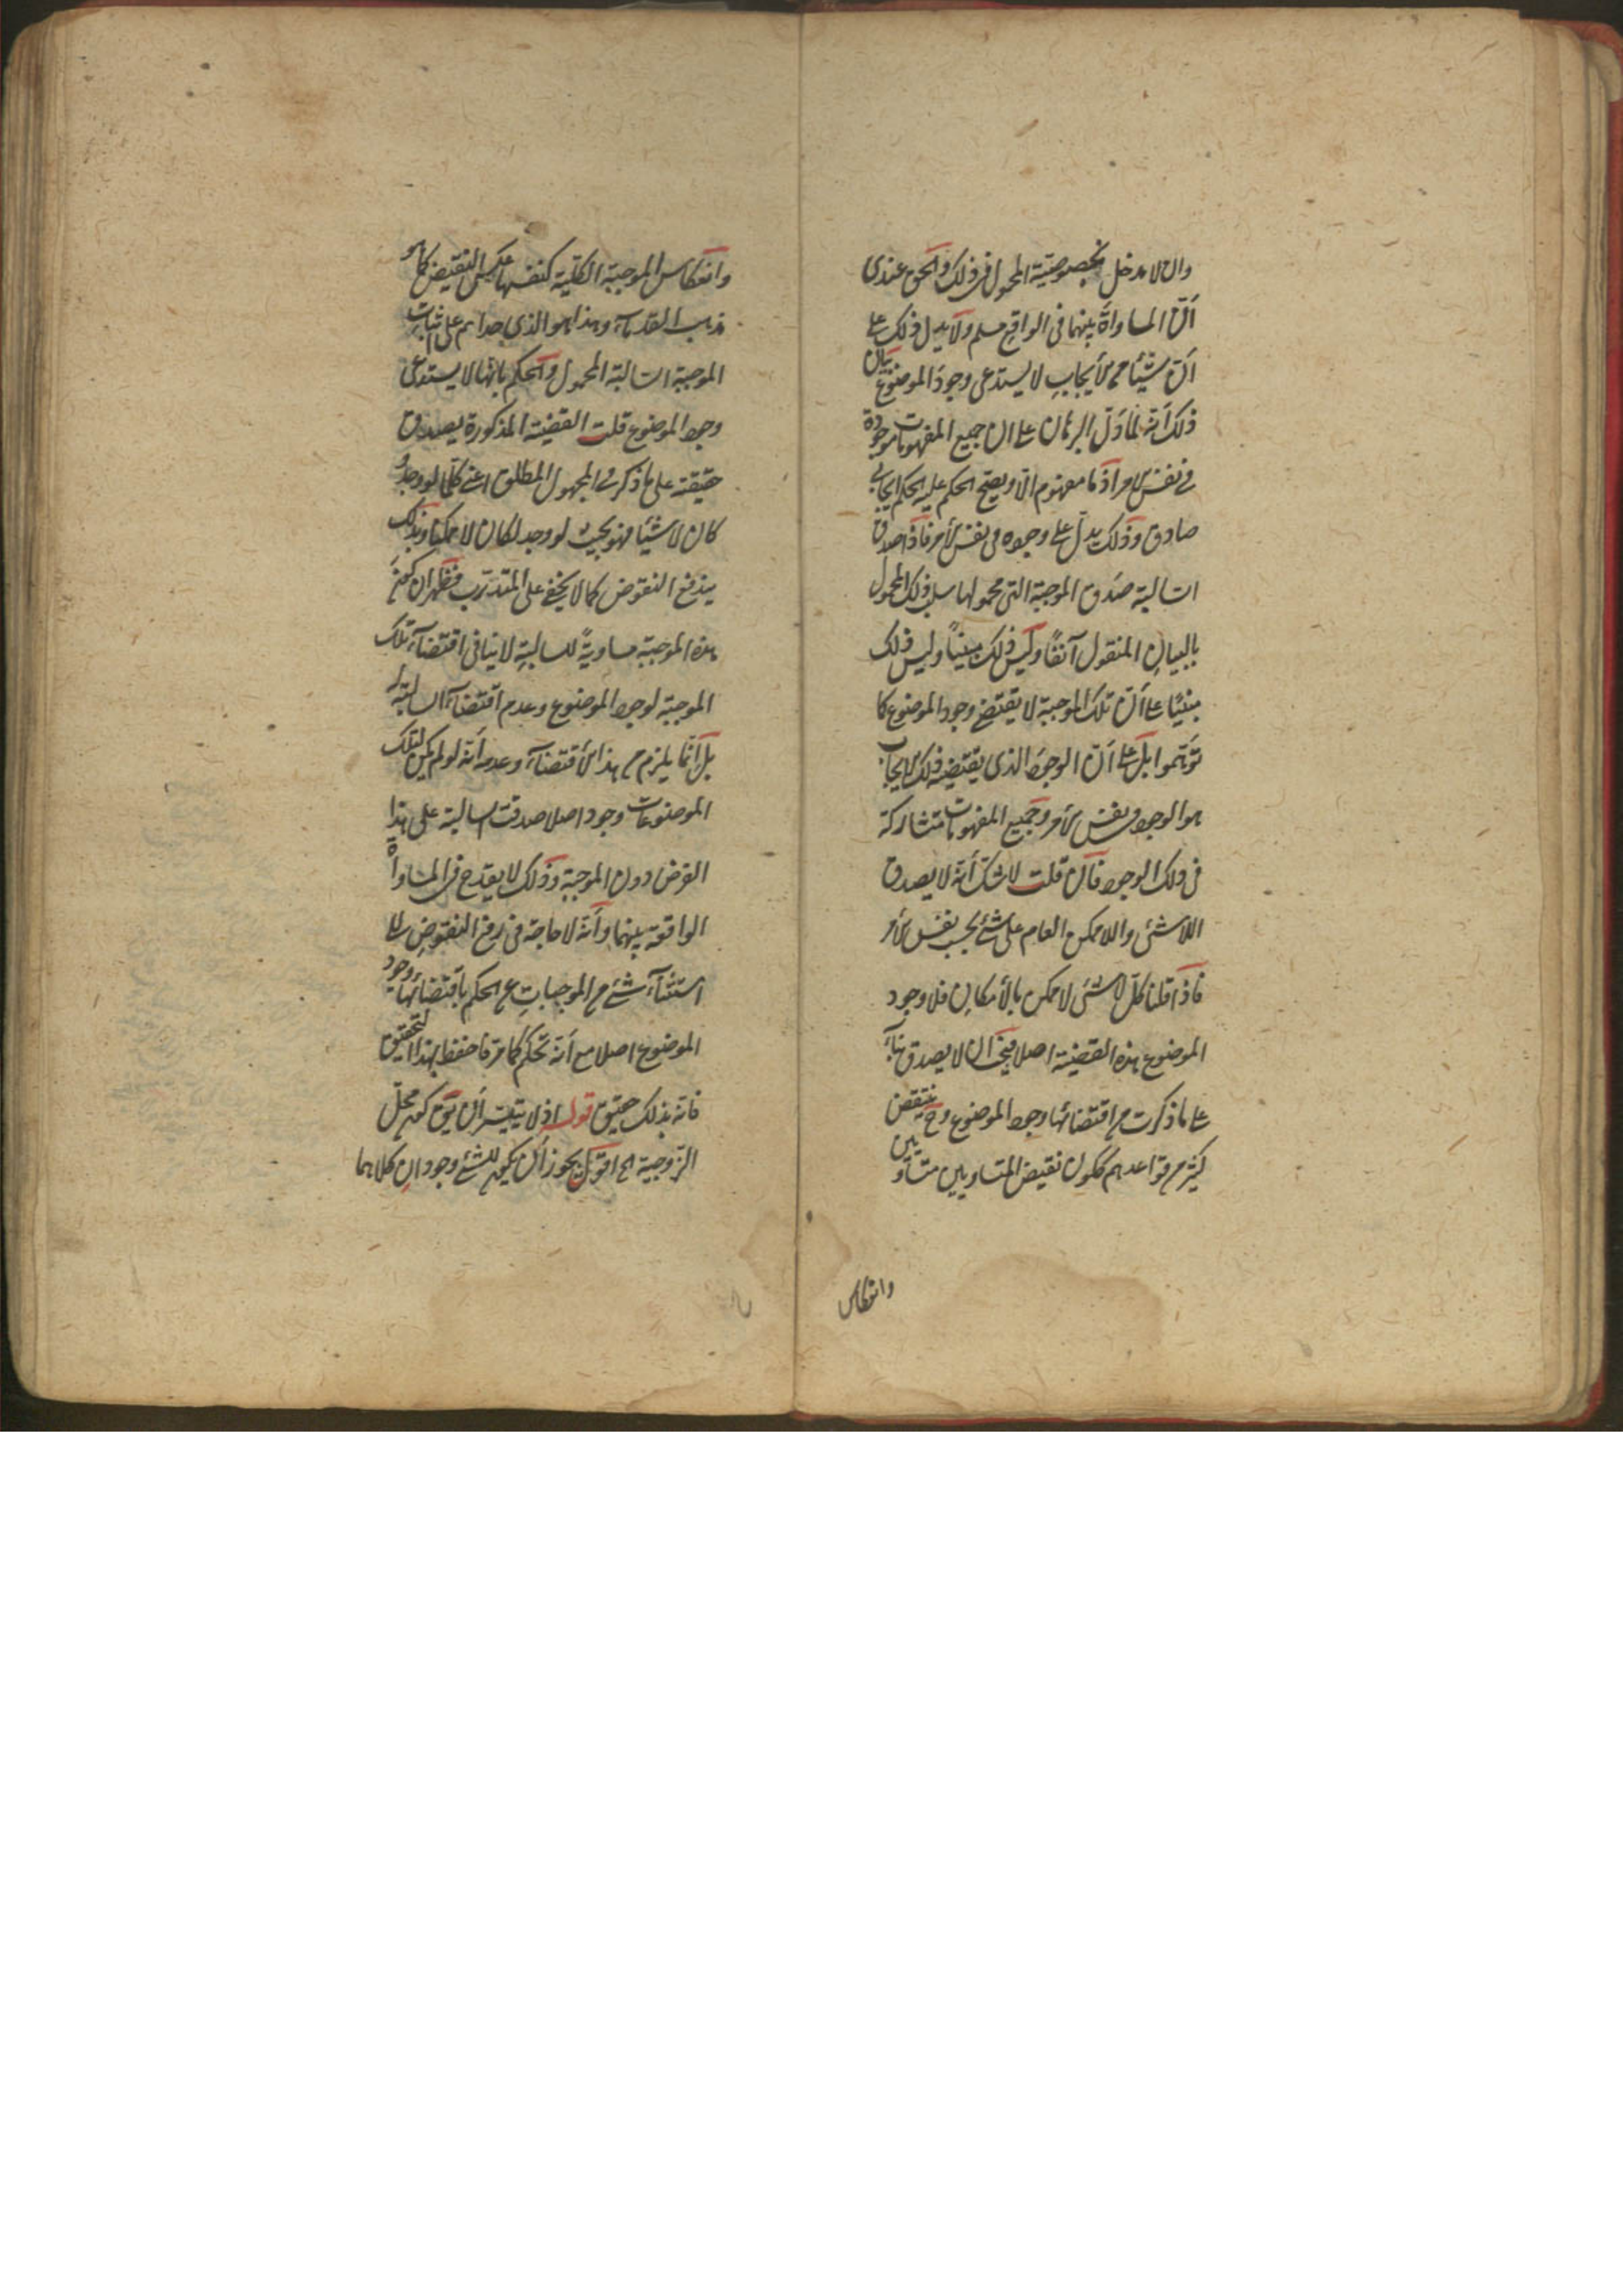 وان لا مدخل بخصوصيّة المحمول فى ذلك والحق عندى
أنّ المساواة بينهما فى الواقع مسلم ولا يدل ذلك على
أنّ شيئا من الايجاب لا يستدعى وجود الموضوع بيان
ذلك أنه لما دلّ البرهان على ان جميع المفهومات موجودة
فى نفس الامر اذ ما من مفهوم الّا ويصح الحكم عليه بحكم ايجابى
صادق وذلك يدلّ على وجوده فى نفس الأمر فاذا صدق
السالبة صدق الموجبة التى محمولها سلب ذلك المحمول
بالبيان المنقول آنفًا وليس ذلك مبنيًا وليس ذلك
مبنيًا على أنّ تلك الموجبة لا يقتضى وجود الموضوع كما
توهّموا بل على أنّ الوجود الذى يقتضيه ذلك الايجاب
هو الوجود فى نفس الأمر وجميع المفهومات متشاركة
فى ذلك الوجود فان قلت لا شك أنه لا يصدق
اللاشئ واللاممكن العام على شئ بحسب نفس الأمر
فاذا قلنا كلّ لا شئ لا ممكن بالأمكان فلا وجود
الموضوع هذه القضية اصلا فيجب ان لا يصدق بناء
على ما ذكرت من اقتضائها وجود الموضوع وح ينتقض
كثير من قواعدهم ككون نقيض المتساويين متساويين
وانعكاس
وانعكاس الموجبة الكلّية كنفسها بعكس النقيض كما هو
مذهب القدماء وهذا هو الذى حداهم على اثبات
الموجبة السالبة المحمول والحكم بانها لا يستدعى
وجود الموضوع قلت القضية المذكورة يصدق
حقيقة على ما ذكر فى المجهول المطلق اعنى كلّما لو وجد
كان لا شيئا فهو بحيث لو وجد لكان لا ممكنا وبذلك
يندفع النقوض كما لا يخفى على المتدرّب فظهر ان كون
هذه الموجبة مساويةً للسالبة لا ينافى اقتضاء تلك
الموجبة لوجود الموضوع وعدم اقتضاء السالبة له
بل انّما يلزم من هذا الأقتضاء وعدمه أنه لو لم يكن لتلك
الموضوعات وجود اصلا صدقت السالبة على هذا
الفرض دون الموجبة وذلك لا يقدح فى المساواة
الواقعة بينهما وأنه لا حاجة فى رفع النقوض الى
استثناء شئ من الموجبات عن الحكم باقتضائها وجود
الموضوع اصلا مع أنه تحكم كما مر فاحفظ بهذا التحقيق
فانه بذلك حقيق قوله اذ لا يتيسّر أن يق كون محلّ
الزّوجية الخ اقول يجوز أن يكون للشئ وجودان كلاهما